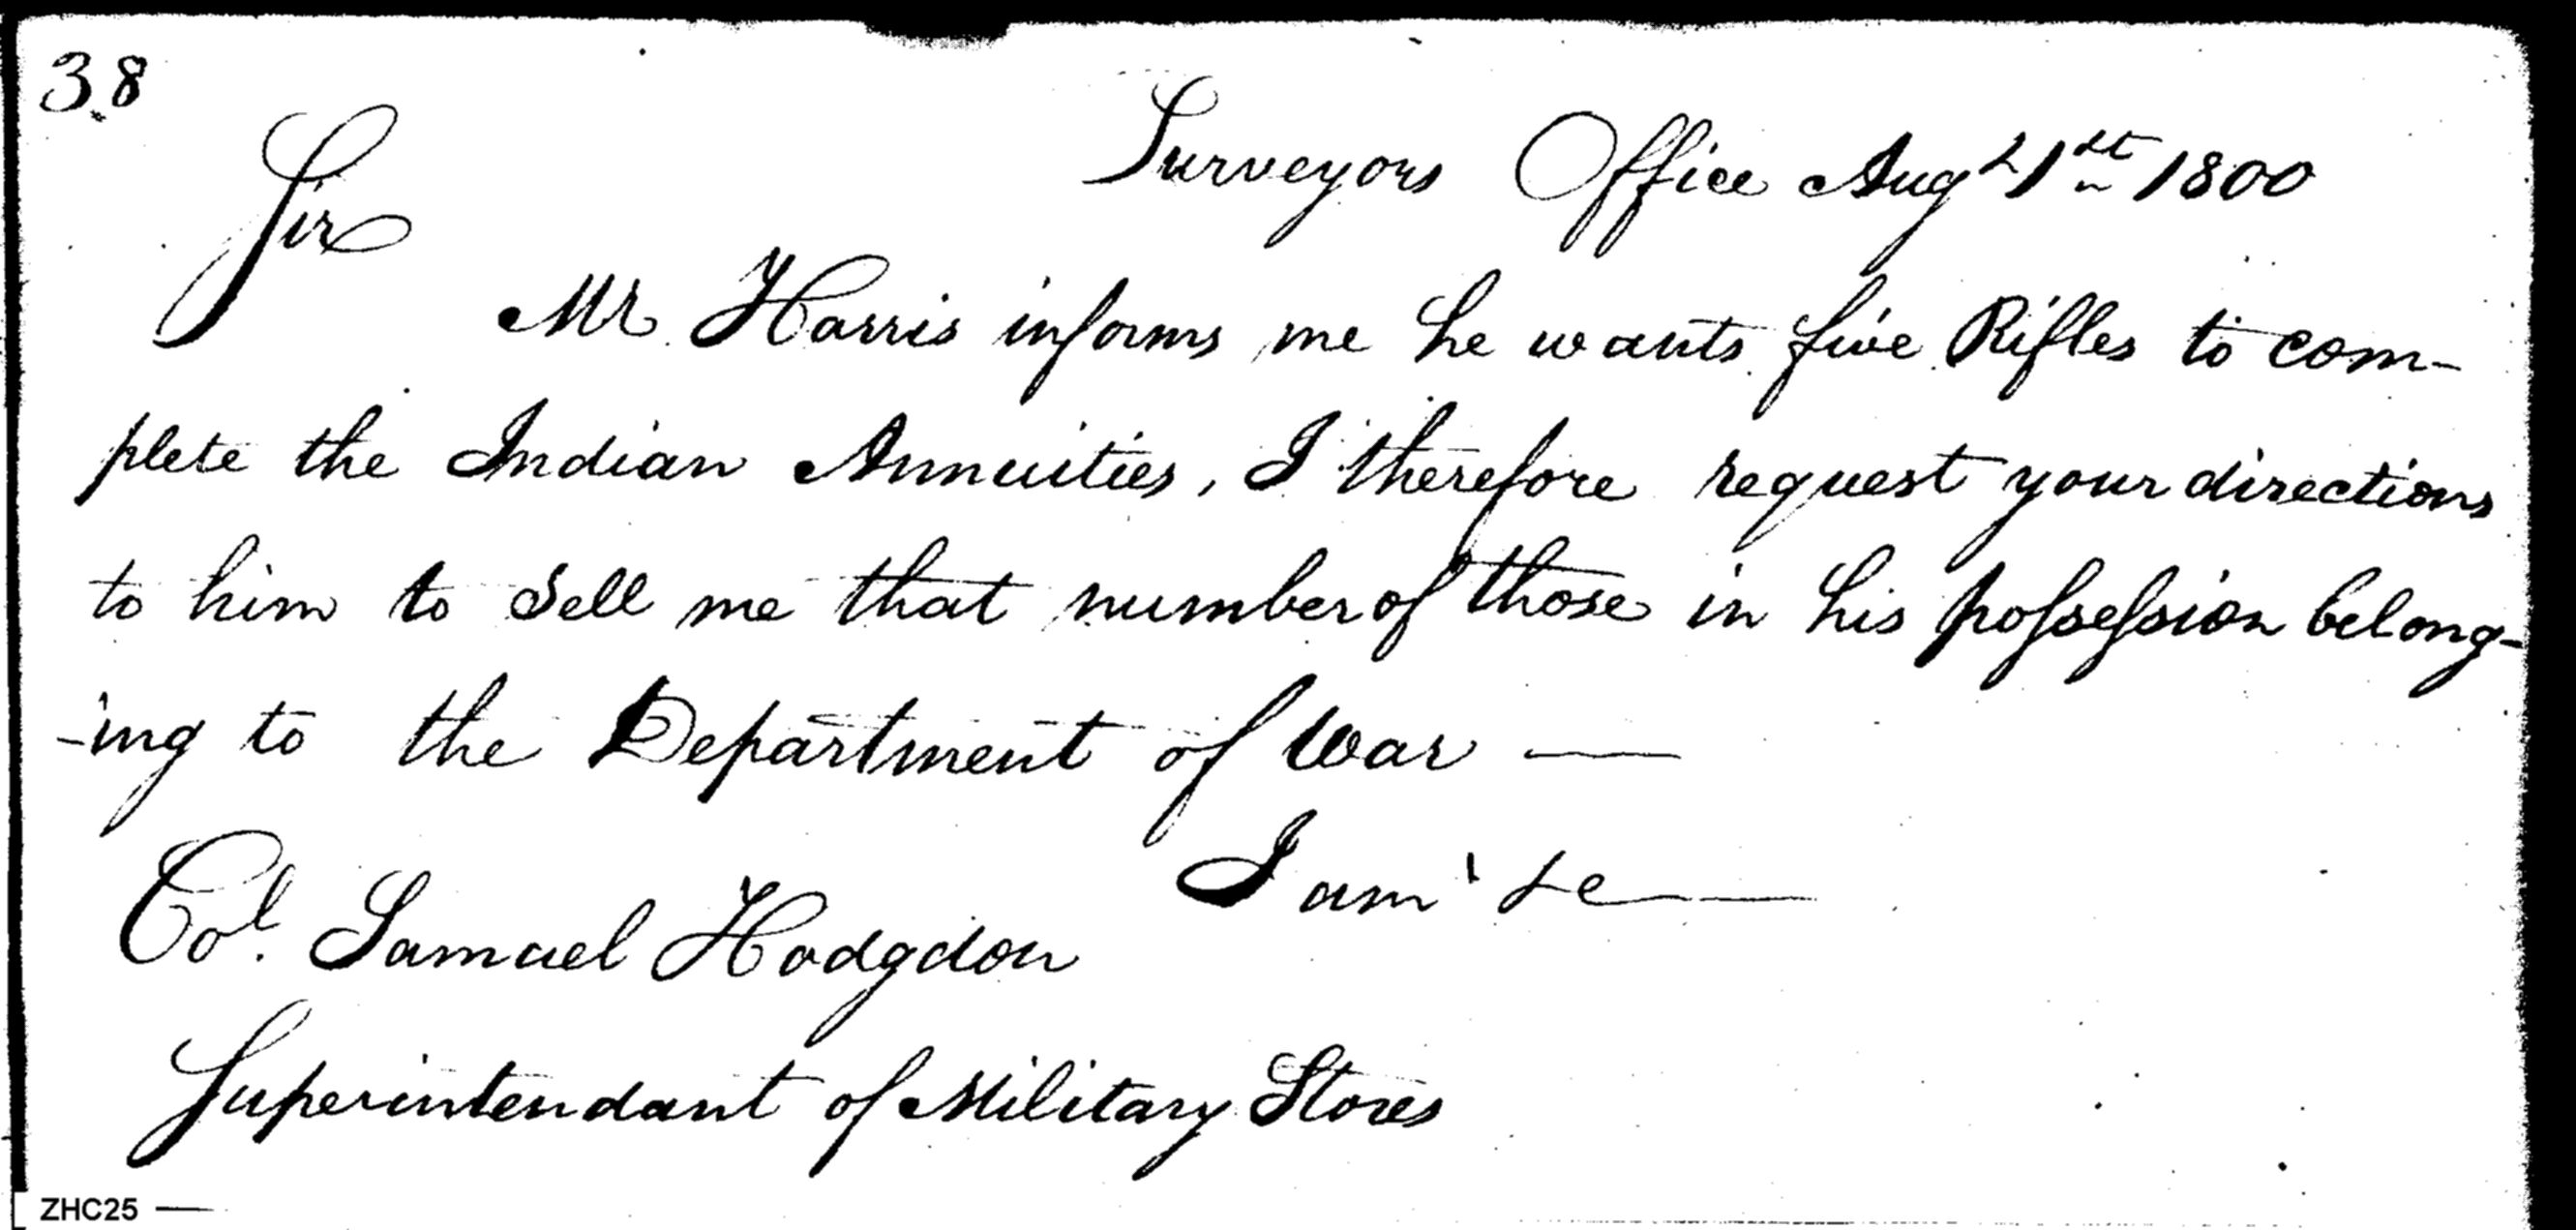 38
Surveyors Office Aug 21st 1800
Sir
Mr Harris informs me he wants five Rifles to com-
plete the Indian Annuities, I therefore request your directions
to him to sell me that number of those in his possession belong-
-ing to the Department of War —
I am &c —
Col. Samuel Hodgdon
Superintendant of Military Stores
ZHC25